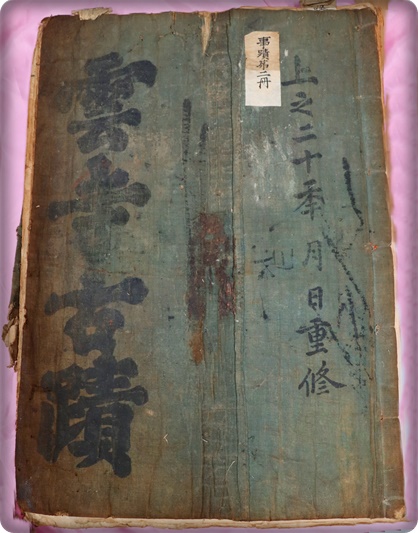 上之二十秊 月 日重修
事蹟第二冊
雲寺古蹟